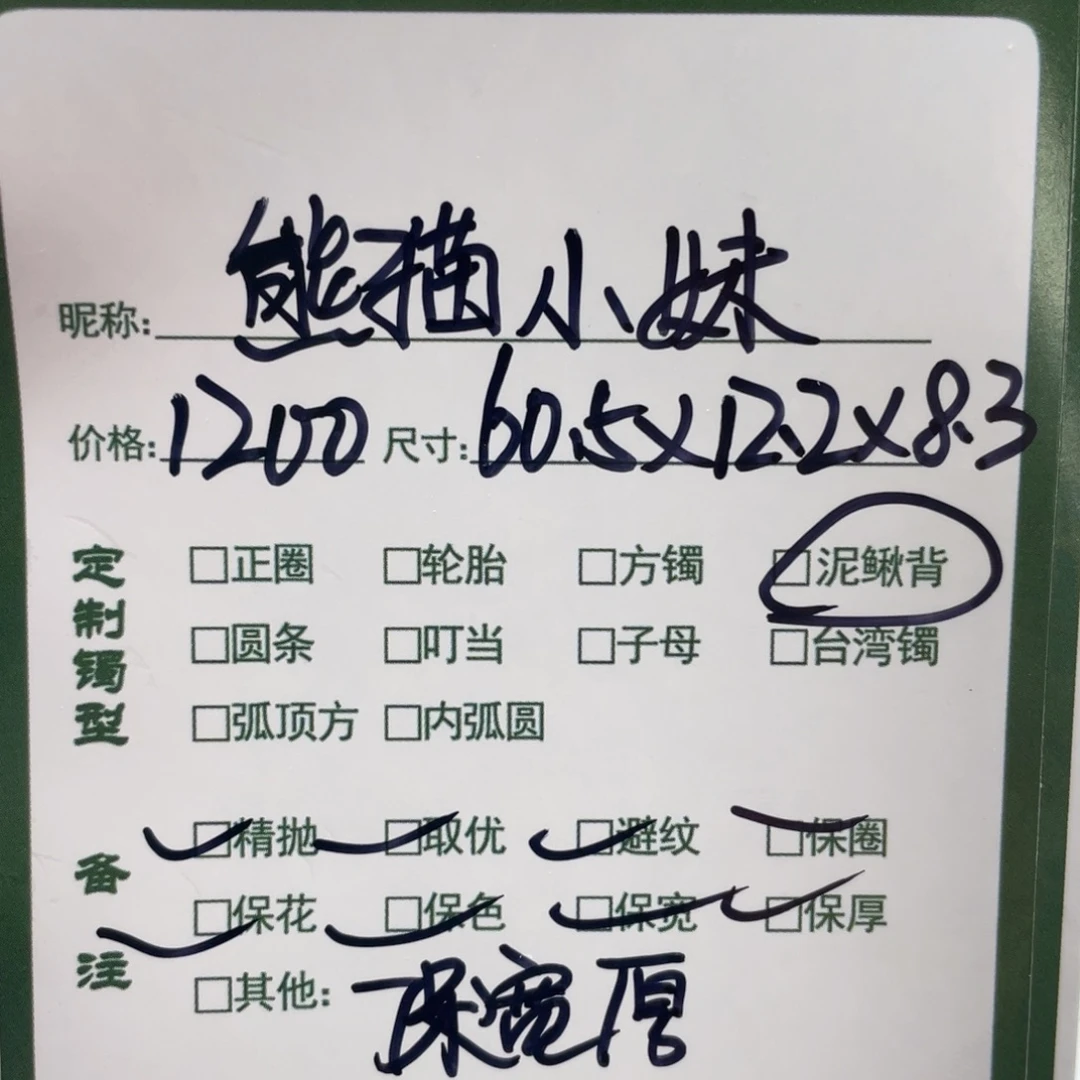 昵称:熊猫小妹
价格:1200 尺寸:60.5×12.2×8.3
定制镯型
□正圈 □轮胎 □方镯 □泥鳅背
□圆条 □叮当 □子母 □台湾镯
□弧顶方 □内弧圆
备注
□精抛 □取优 □避纹 □保圈
□保花 □保色 □保宽 □保厚
□其他:保宽厚